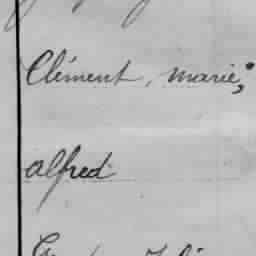 Clément, marie,
alfred